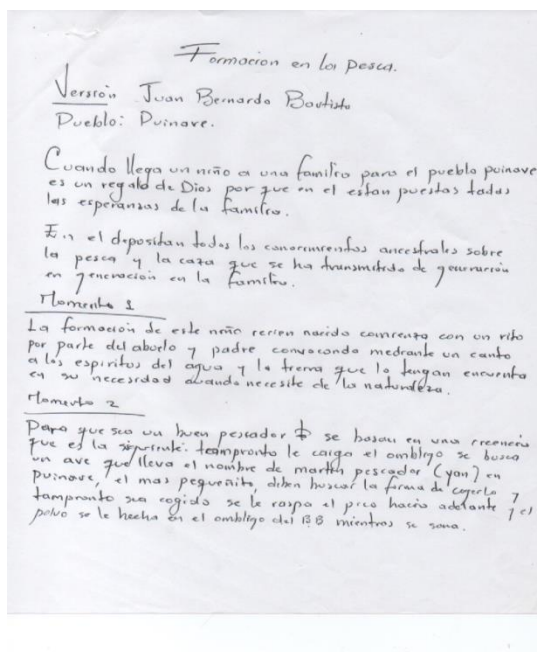 Formacion en la pesca.
Versión Juan Bernardo Bautista
Pueblo: Puinave.
Cuando llega un niño a una familia para el pueblo puinave
es un regalo de Dios por que en el estan puestas todas
las esperanzas de la familia.
En el depositan todos los conocimientos ancestrales sobre
la pesca y la caza que se ha transmitido de generación
en generación en la familia.
Momento 1
La formación de este niño recien nacido comienza con un rito
por parte del abuelo y padre convocando mediante un canto
a los espiritus del agua y la tierra que lo tengan encuenta
en su necesidad cuando necesite de la naturaleza.
Momento 2
Para que sea un buen pescador se basan en una creencia
que es la siguiente: tampronto le caiga el ombligo se busca
un ave que lleva el nombre de martin pescador (yan) en
puinave, el mas pequeñito, diben buscar la forma de cogerlo y
tampronto sea cogido se le raspa el pico hacia adelante y el
polvo se le hecha en el ombligo del BB mientras se sana.